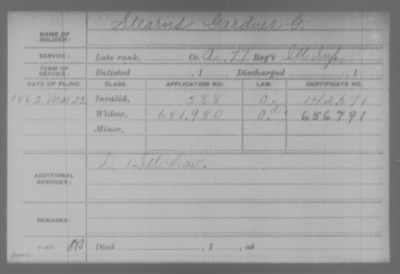 NAME OF SOLDIER: Stearns, Gardner C.
SERVICE: Late rank, Co. A, 71 Reg't Ill. Inf.
TERM OF SERVICE: Enlisted , 1 Discharged , 1
DATE OF FILING. CLASS. APPLICATION NO. LAW. CERTIFICATE NO.
Invalid, 588 142,671
Widow, 681,980 656791
Minor,
ADDITIONAL SERVICES: D, Ill. Cav.
REMARKS:
Died , 1 , at